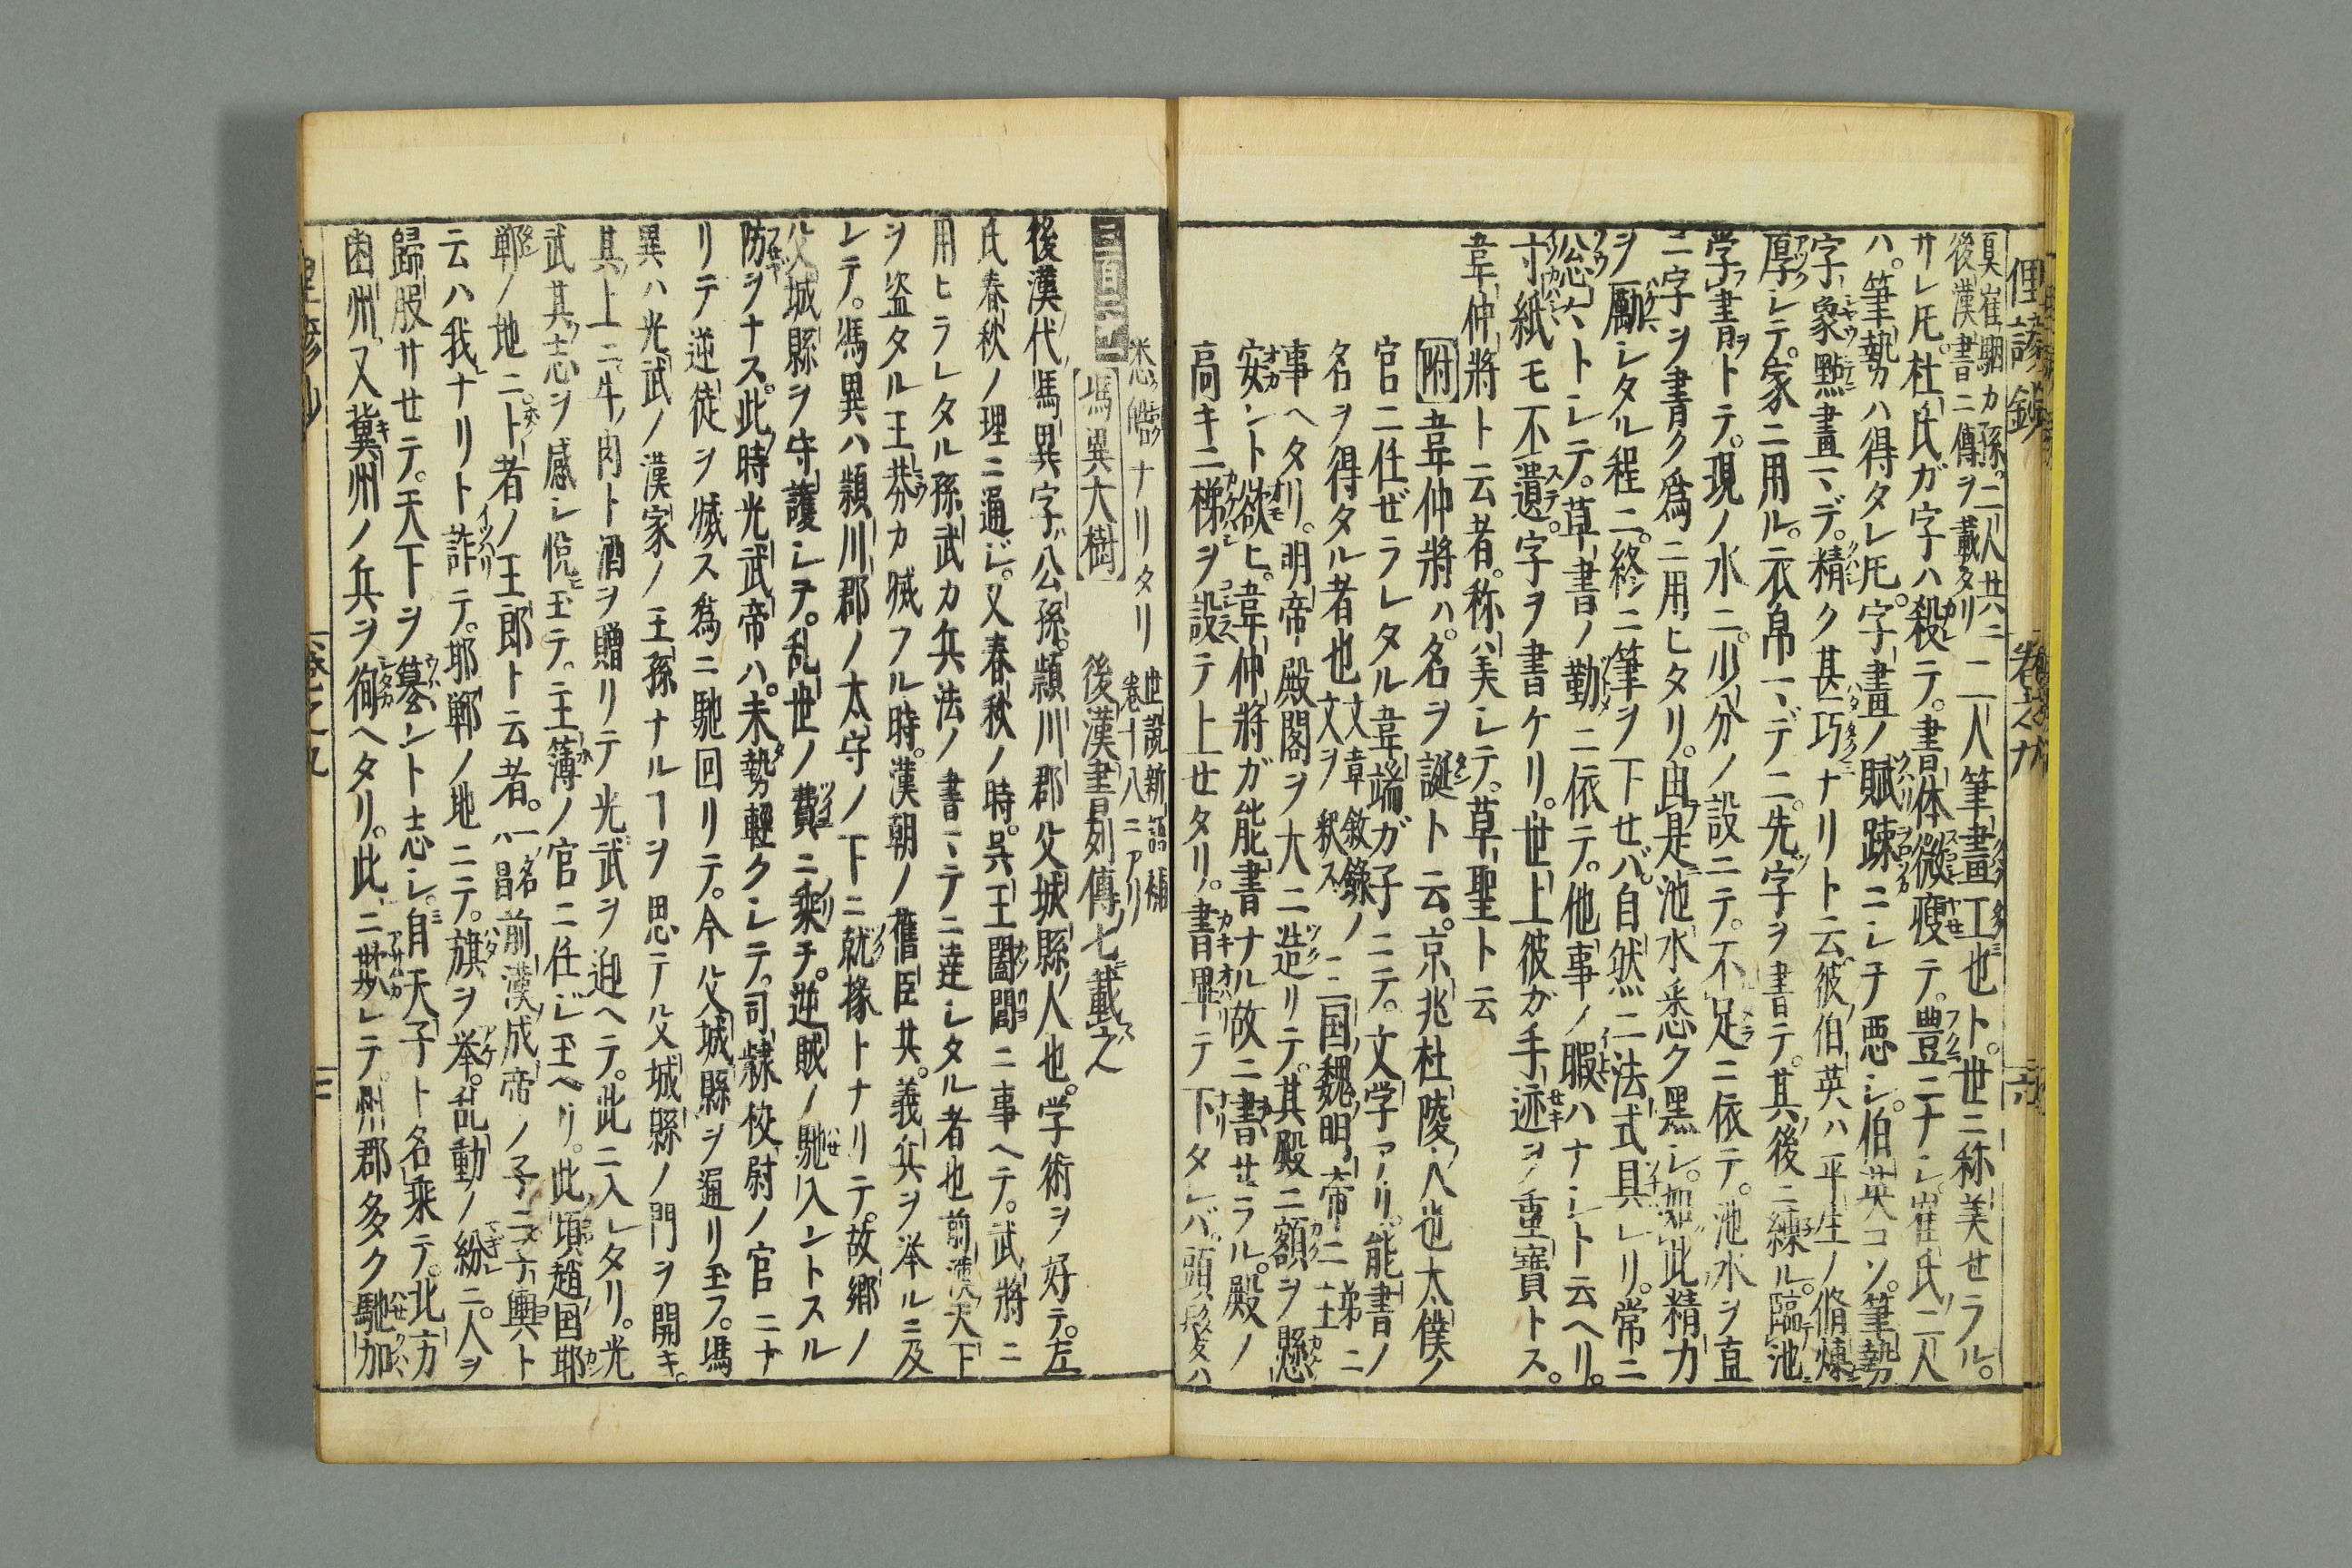 俚諺鈔 卷之九 六
寔崔駰カ孫。二人共ニ
後漢書ニ傳ヲ載タリ
二人筆畫工也ト。世ニ称美セラル。
サレ𪜈。杜氏ガ字ハ殺テ。書体微瘦テ。豊ニナシ。崔氏二人
ハ。筆勢ハ得タレ𪜈。字畫ノ賦踈ニシテ悪シ。伯英コソ。筆勢
字象點畫マデ。精ク甚巧ナリト云。彼伯英ハ平生ノ脩煉
厚シテ。家ニ用ル。衣帛マデニ。先字ヲ書テ。其後ニ練ル。臨池
学書トテ。現ノ水ニ。少分ノ設ニテ。不足ニ依テ。池水ヲ直
ニ字ヲ書ク爲ニ用ヒタリ。由是池水悉ク黒シ。如此精力
ヲ勵シタル程ニ。終ニ筆ヲ下セバ。自然ニ法式具レリ。常ニ
忩々トシテ。草書ノ勤ニ依テ。他事ノ暇ハナシト云ヘリ。
寸紙モ不遺。字ヲ書ケリ。世上彼ガ手迹ヲ重寳トス。
韋仲將ト云者。称美シテ。草聖ト云
附 韋仲將ハ。名ヲ誕ト云。京兆杜陵ノ人也太僕ノ
官ニ任ゼラレタル韋端ガ子ニテ。文学アリ。能書ノ
名ヲ得タル者也
文章敘録ノ
文ヲ釈ス
三国魏明帝ニ㐧ニ
事ヘタリ。明帝殿閣ヲ大ニ造リテ。其殿ニ額ヲ懸
安ント欲ヒ。韋仲將ガ能書ナル故ニ書セラル。殿ノ
高キニ梯ヲ設テ上セタリ。書畢テ下タレバ。頭髮ハ
ナリタリ
世說新語補
卷十八ニアリ
馮異大樹 後漢書列傳七載之
後漢代馮異字公孫。頴川郡父城縣人也。学術ヲ好テ。左
氏春秋ノ理ニ通ジ。又春秋ノ時。呉王闔閭ニ事ヘテ。武將ニ
用ヒラレタル孫武カ兵法ノ書マテニ達シタル者也前漢天下
ヲ盗タル王莽カ滅フル時。漢朝ノ舊臣共。義兵ヲ举ルニ及
レテ。馮異ハ頴川郡ノ太守ノ下ニ就。掾トナリテ。故郷ノ
父城縣ヲ守護シテ。乱世ノ費ニ乘テ。逆賊ノ馳入ントスル
防ヲナス。此時光武帝ハ。未勢輕クシテ。司隸校尉ノ官ニナ
リテ逆徒ヲ滅ス爲ニ馳回リテ。今父城縣ヲ通リ玉フ。馮
異ハ光武ノ漢家ノ王孫ナルヿヲ思テ父城縣ノ門ヲ開キ。
其上ニ牛肉ト酒ヲ贈リテ光武ヲ迎ヘテ。此ニ入レタリ。光
武其志ヲ感シ悅玉テ。主簿ノ官ニ任ジ玉ヘリ。此頃趙国邯
鄲ノ地ニ。卜者ノ王郎ト云者。
一名ハ昌
前漢成帝ノ子ニ子輿ト
云ハ我ナリト詐テ。邯鄲ノ地ニテ。旗ヲ举。乱動ノ紛ニ。人ヲ
歸服サセテ。天下ヲ簒ント志シ。自天子ト名乘テ。北方
幽州又冀州ノ兵ヲ徇ヘタリ。此ニ欺レテ。州郡多ク馳加